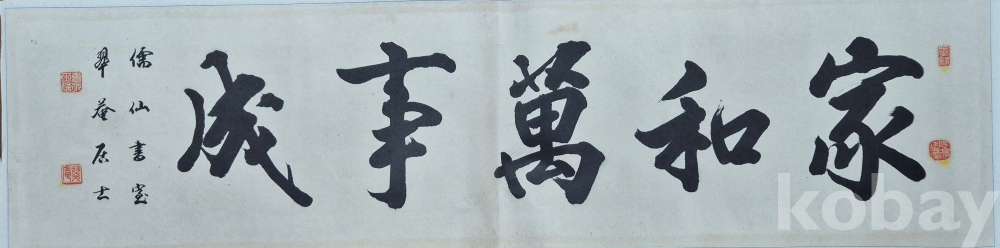 家和萬事成
儒仙書室
翠菴居士
kobay